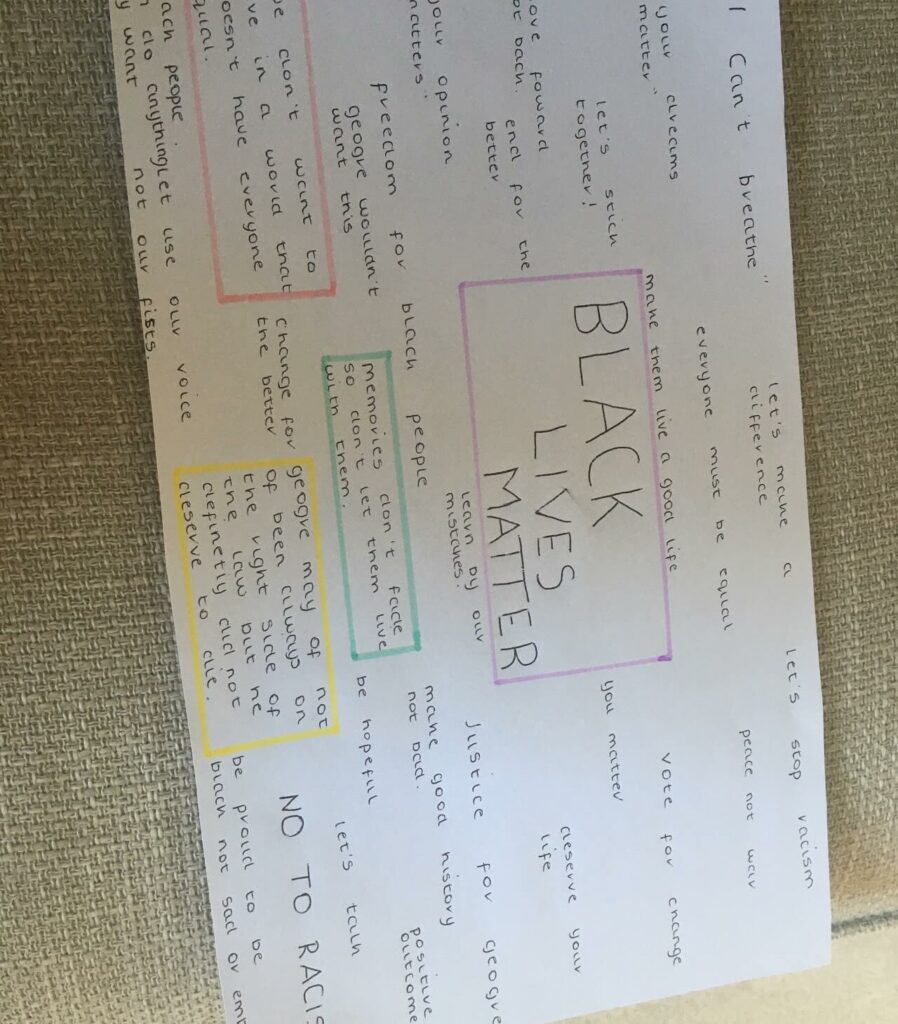 I can't breathe"
let's make a
difference
let's stop racism
peace not war
everyone must be equal
your dreams
matter"
make them live a good life
vote for change
let's stick
together!
BLACK
LIVES
MATTER
you matter
deserve your
life
foward
not back.
end for the
better
your opinion
matters'
learn by our
mistakes!
Justice for geogre
make good history
not bad.
positive
outcome
freedom for black people
geogre wouldn't
want this
memories don't fade
so don't let them live
with them.
be hopefill
let's talk
don't want to
in a world that
doesn't have everyone
change for
the better
geogre may of not
of been always on
the right side of
the law but he
definetly did not
deserve to die.
NO TO
be proud to be
black not sad or
people
do anything
want
let use our voice
not our fists.